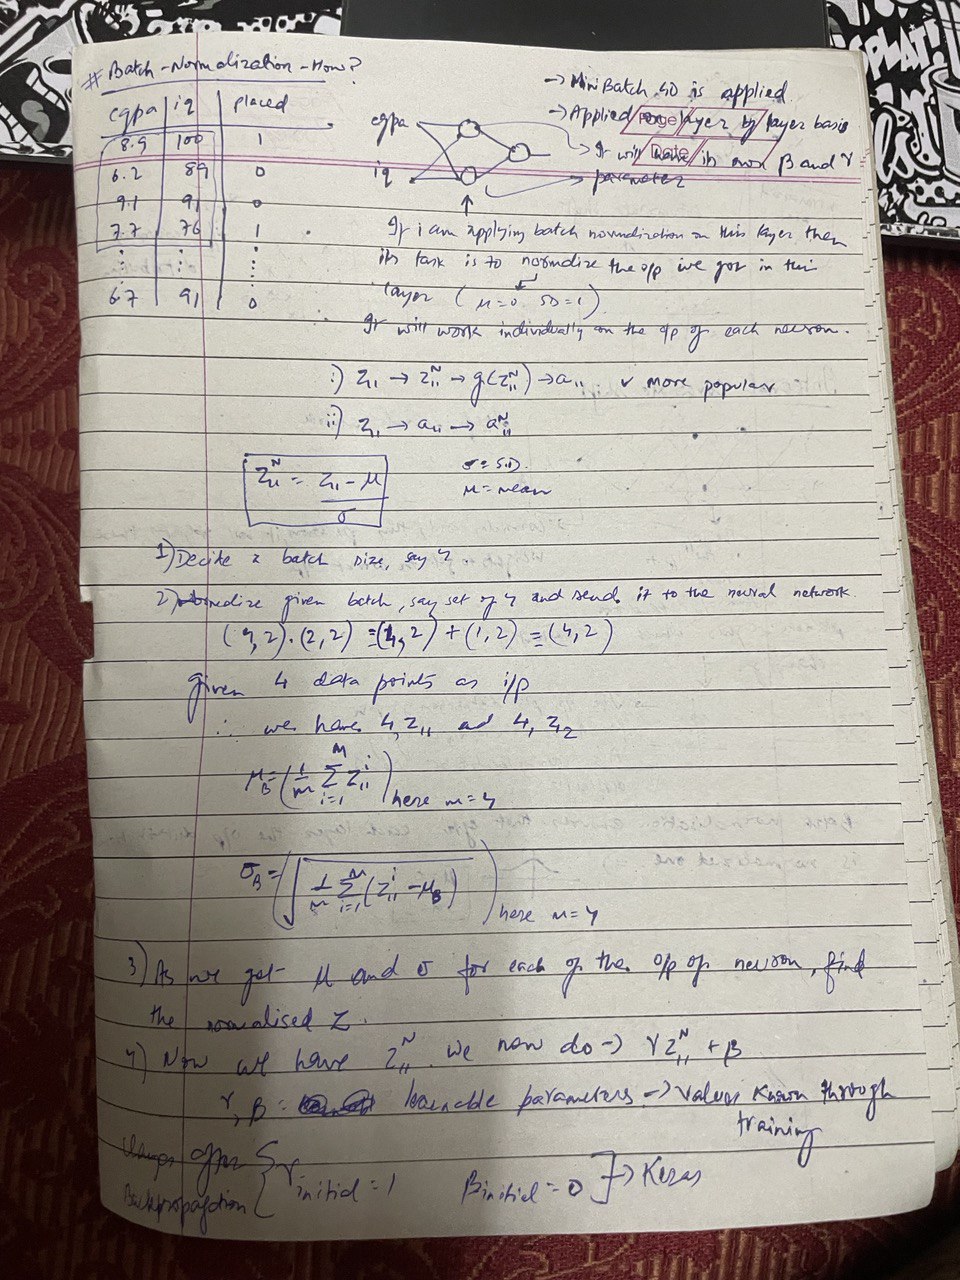 # Batch-Normalization-How?
cgpa iq placed
8.9 100 1
6.2 89 0
9.1 91 0
7.7 76 1
6.7 91 0
cgpa
iq
→ Mini Batch SD is applied.
→ Applied on layer by layer basis
Page
Date
→ It will have its own β and γ
→ parameter
If i am applying batch normalization on this layer then
its task is to normalize the o/p we got in this
layer ( μ=0 SD=1 )
It will work individually on the o/p of each neuron.
i) Z₁₁ → Z₁₁ᴺ → g(Z₁₁ᴺ) → a₁₁ ✓ More popular
ii) Z₁₁ → a₁₁ → a₁₁ᴺ
Z₁₁ᴺ = Z₁₁ - μ
σ
σ = S.D.
μ = mean
1) Decide a batch size, say 4
2) given batch, say set of 4 and send it to the neural network.
(4,2).(2,2) = (4,2) + (1,2) = (4,2)
given 4 data points as i/p
∴ we have 4, Z₁₁ and 4, Z₁₂
μ_B = (1/m Σ_{i=1}^{M} Z₁₁ⁱ) here m=4
σ_B = (√(1/m Σ_{i=1}^{M} (Z₁₁ⁱ - μ_B))) here m=4
3) As we get μ and σ for each of the o/p of neuron, find
the normalised Z.
4) Now we have Z₁₁ᴺ. We now do → γ Z₁₁ᴺ + β
γ, β = learnable parameters → values known through
training
Changes after { γ initial = 1 β initial = 0 ] → Keras
Backpropagation